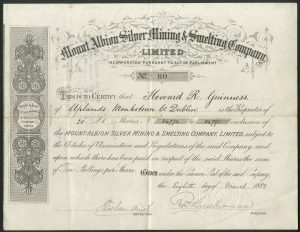 Mount Albion Silver Mining & Smelting Company,
LIMITED
INCORPORATED PURSUANT TO ACT OF PARLIAMENT
No 80
THIS IS TO CERTIFY that Howard R. Guinness
of Uplands Monkstown Co Dublin is the Proprietor of
20 Shares inclusive of
the MOUNT ALBION SILVER MINING & SMELTING COMPANY, LIMITED, subject to
the Articles of Association and Regulations of the said Company and
upon which there has been paid in respect of the said Shares the sum
of Shillings per Share. Given under the Common Seal of the said Company
the Eighth day of March 1888